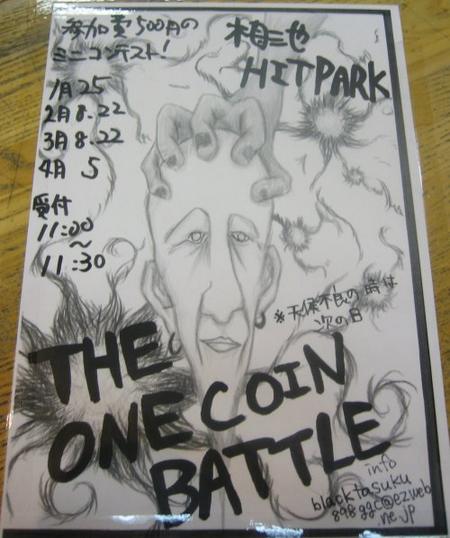 参加費500円の
ミニコンテスト!
1月 25
2月 8.22
3月 8.22
4月 5
受付
11:00
～
11:30
HITPARK
※天候不良の時は
次の日
THE
ONE COIN
BATTLE
info
blacktasuku
898ggc@ezweb
ne.jp